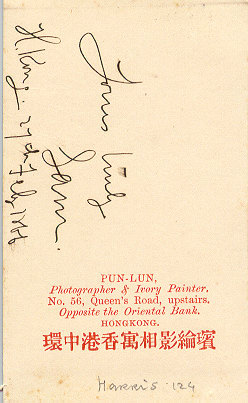 Yours truly
H. Kong. 27th Feby 1866
PUN-LUN,
Photographer & Ivory Painter,
No. 56, Queen's Road, upstairs,
Opposite the Oriental Bank,
HONGKONG.
環中港香寓相影綸璸
Harris 124